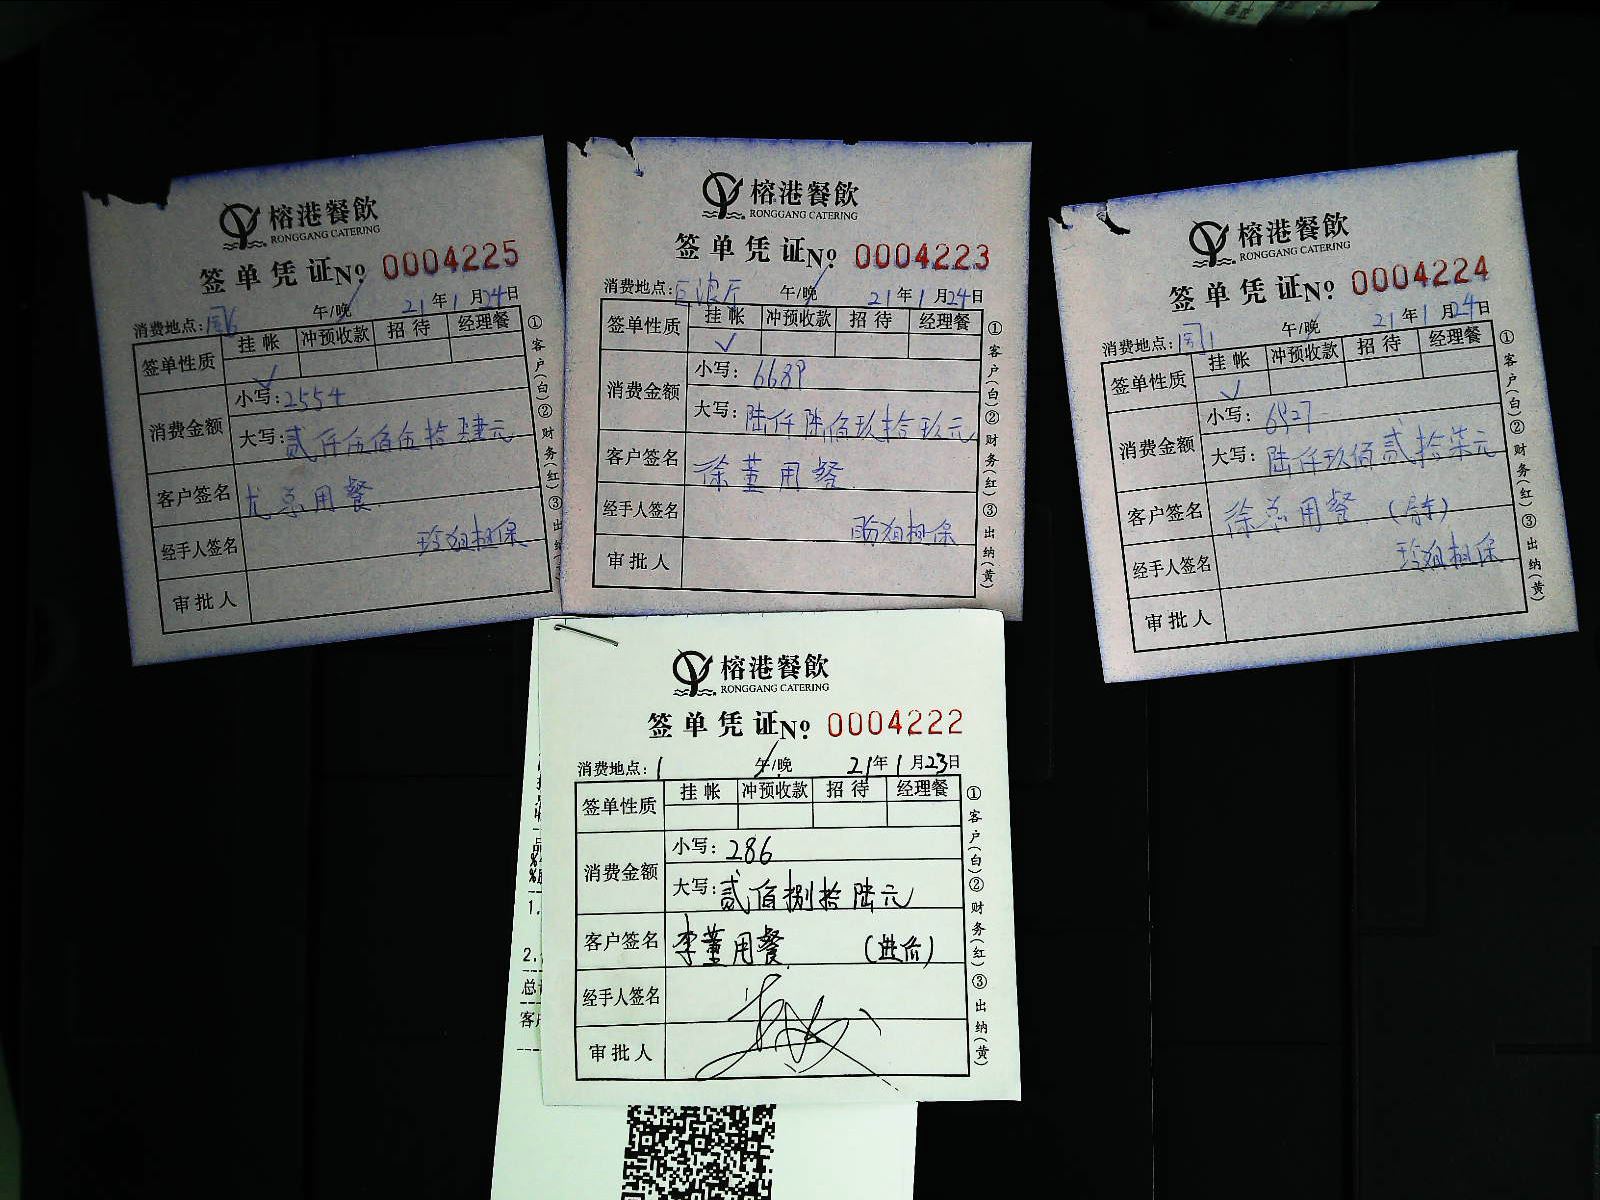 榕港餐飲
RONGGANG CATERING
签单凭证 No 0004225
消费地点: 周6 午/晚 21年1月24日
签单性质 挂帐 冲预收款 招待 经理餐
✓
消费金额 小写: 2554
大写: 贰仟伍佰伍拾肆元
客户签名 尤总用餐
经手人签名
审批人
①客户(白)②财务(红)③出纳
榕港餐飲
RONGGANG CATERING
签单凭证 No 0004223
消费地点: 巨浪厅 午/晚 21年1月24日
签单性质 挂帐 冲预收款 招待 经理餐
✓
消费金额 小写: 6689
大写: 陆仟陆佰玖拾玖元
客户签名 徐董用餐
经手人签名
审批人
①客户(白)②财务(红)③出纳(黄)
榕港餐飲
RONGGANG CATERING
签单凭证 No 0004224
消费地点: 周1 午/晚 21年1月24日
签单性质 挂帐 冲预收款 招待 经理餐
✓
消费金额 小写: 6927
大写: 陆仟玖佰贰拾柒元
客户签名 徐总用餐
经手人签名
审批人
①客户(白)②财务(红)③出纳(黄)
榕港餐飲
RONGGANG CATERING
签单凭证 No 0004222
消费地点: 1 午/晚 21年1月23日
签单性质 挂帐 冲预收款 招待 经理餐
消费金额 小写: 286
大写: 贰佰捌拾陆元
客户签名 李董用餐 (进价)
经手人签名
审批人
①客户(白)②财务(红)③出纳(黄)
1.
2.
总
客